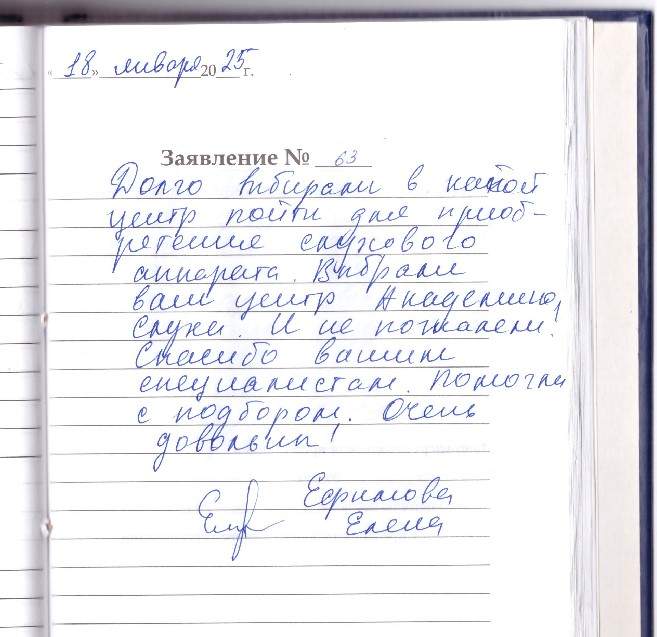 «18» января 2025 г.
Заявление № 63
Долго выбирали в какой
центр пойти для приоб-
ретение слухового
аппарата. Выбрали
ваш центр Академию
слуха. И не пожалели.
Спасибо вашим
специалистам. Помогли
с подбором. Очень
довольны!
Ефримова
Елена